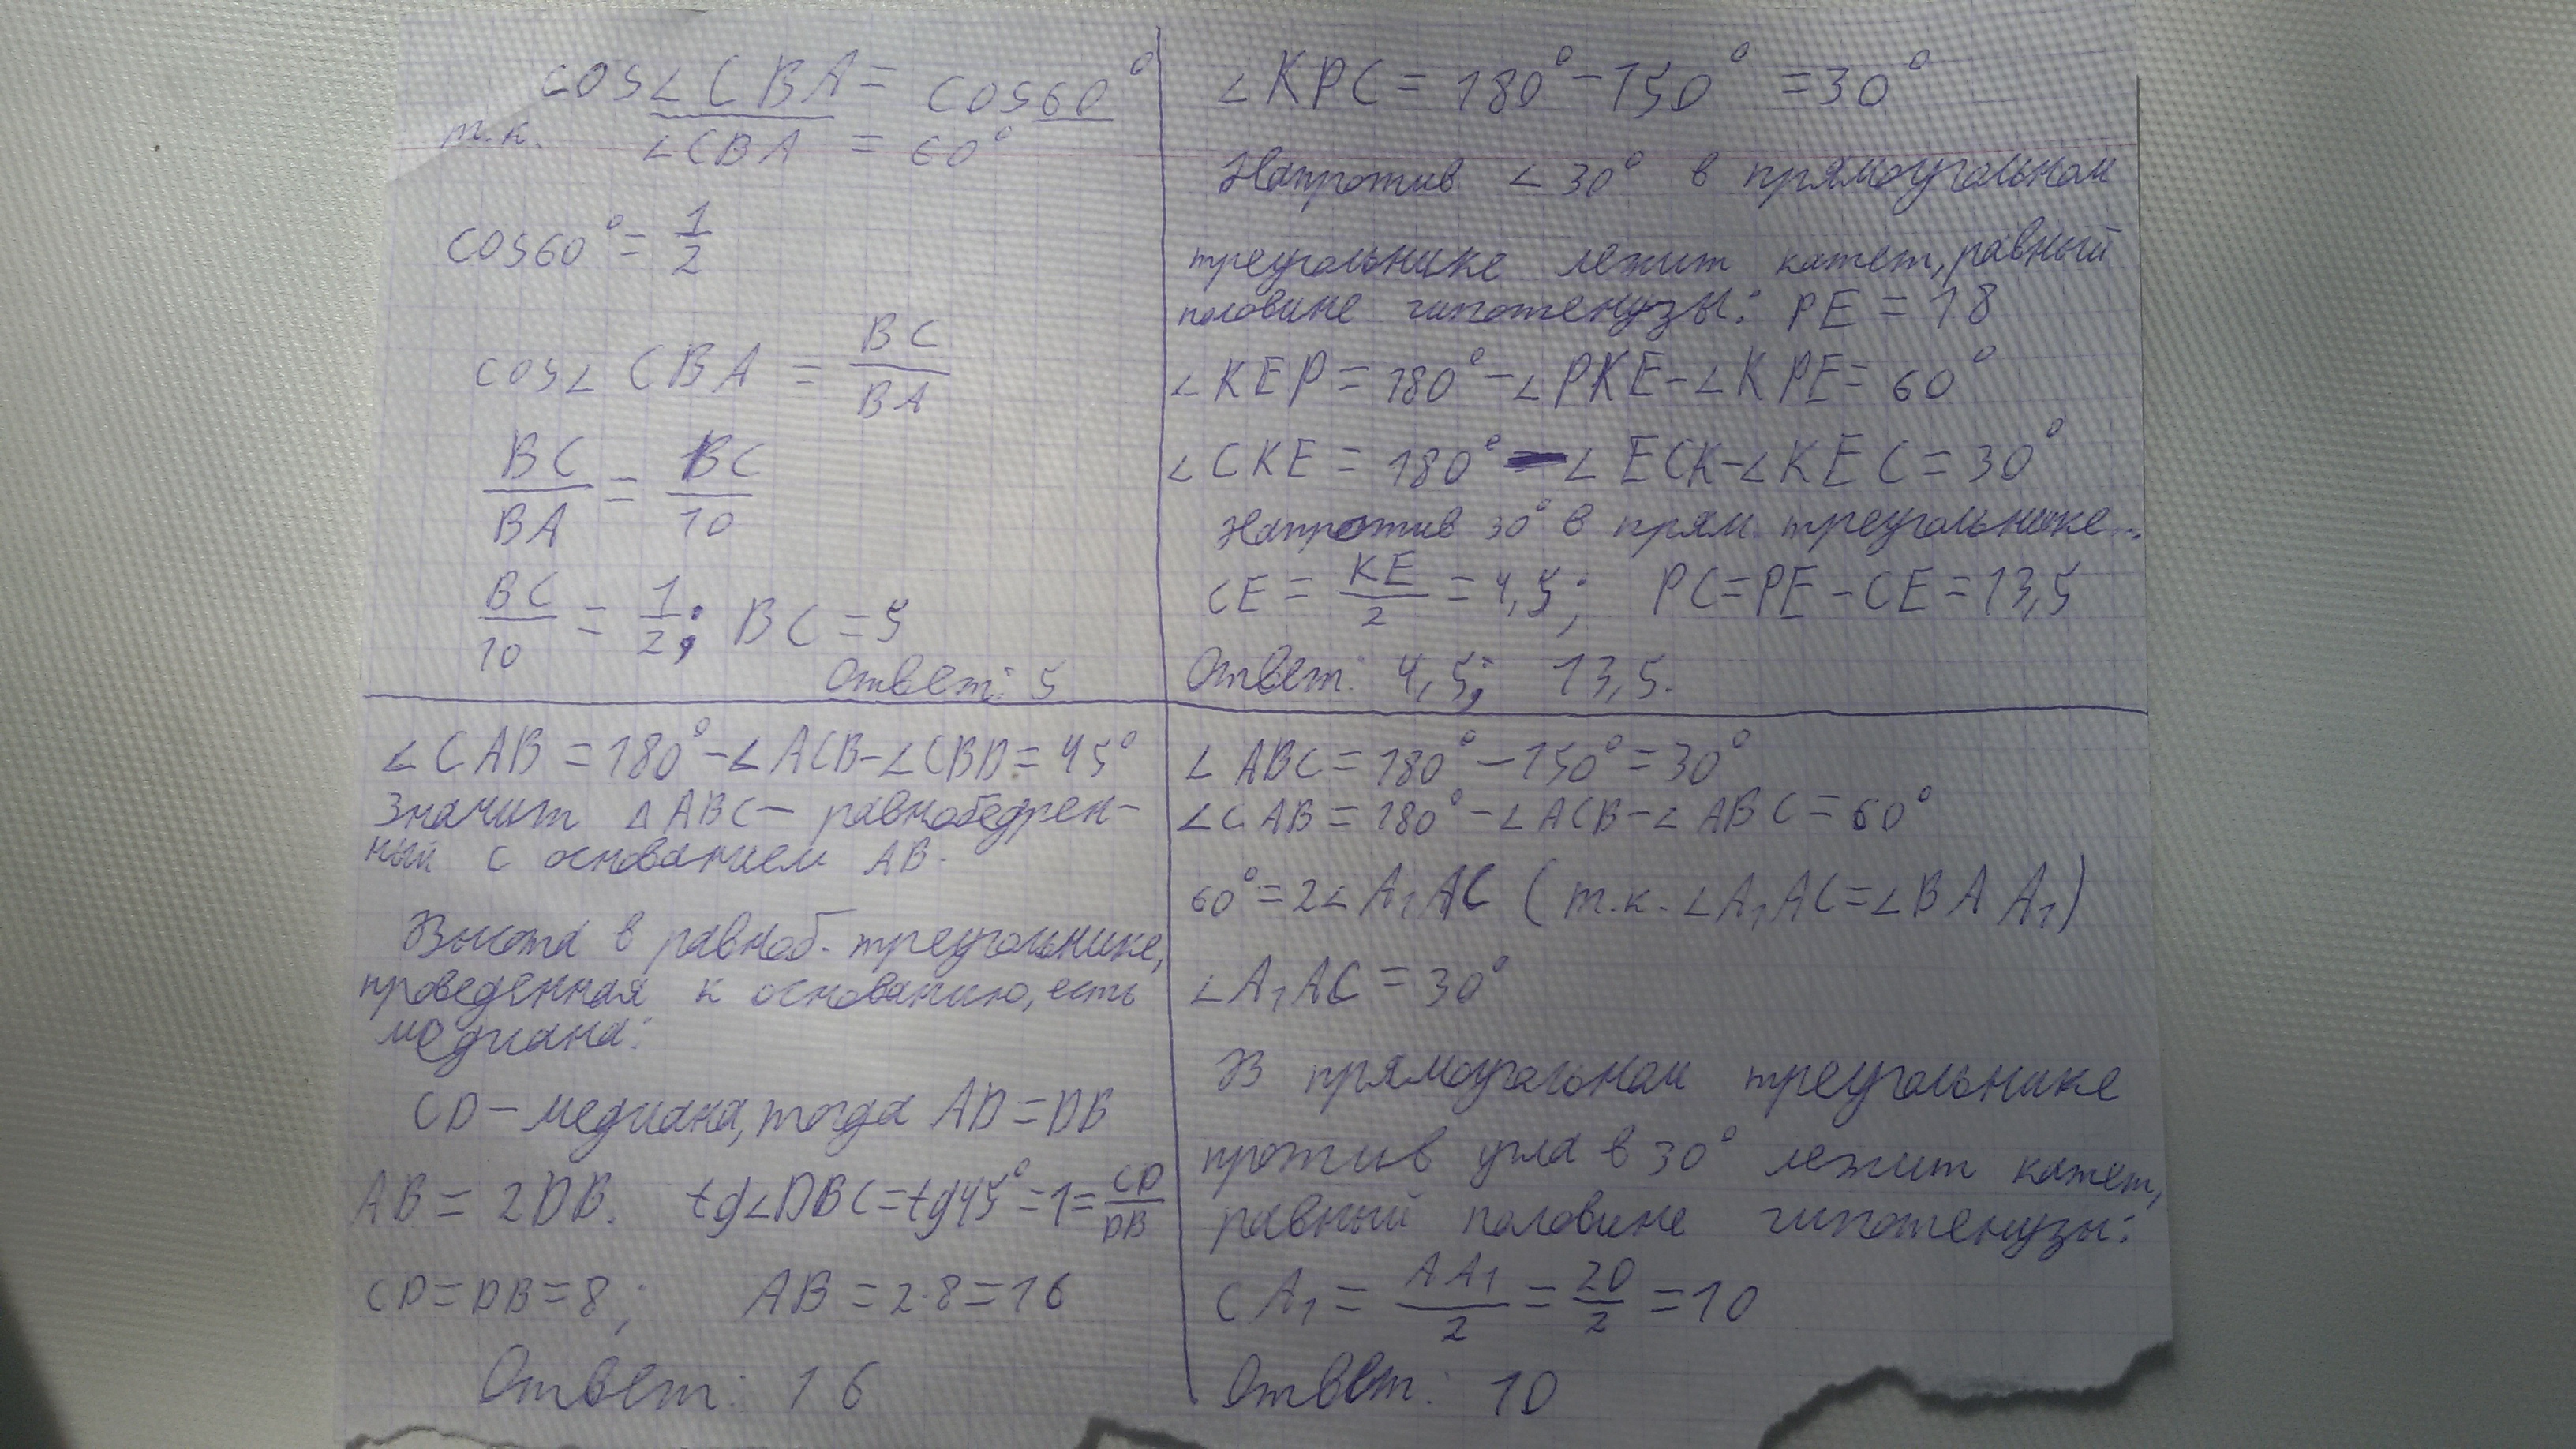 cos∠CBA = cos60°
т.к. ∠CBA = 60°
cos60° = 1/2
cos∠CBA = BC/BA
BC/BA = BC/10
BC/10 = 1/2; BC = 5
Ответ: 5
∠KPC = 180° - 150° = 30°
Напротив ∠30° в прямоугольном
треугольнике лежит катет, равный
половине гипотенузы: PE = 18
∠KEP = 180° - ∠PKE - ∠KPE = 60°
∠CKE = 180° - ∠ECK - ∠KEC = 30°
Напротив 30° в прям. треугольнике...
CE = KE/2 = 4,5; PC = PE - CE = 13,5
Ответ: 4,5; 13,5.
∠CAB = 180° - ∠ACB - ∠CBD = 45°
Значит △ABC — равнобедрен-
ный с основанием AB.
Высота в равноб. треугольнике,
проведенная к основанию, есть
медиана:
CD — медиана, тогда AD = DB
AB = 2DB. tg∠DBC = tg45° = 1 = CD/DB
CD = DB = 8; AB = 2·8 = 16
Ответ: 16
∠ABC = 180° - 150° = 30°
∠CAB = 180° - ∠ACB - ∠ABC = 60°
60° = 2∠A₁AC (т.к. ∠A₁AC = ∠BAA₁)
∠A₁AC = 30°
В прямоугольном треугольнике
против угла в 30° лежит катет,
равный половине гипотенузы:
CA₁ = AA₁/2 = 20/2 = 10
Ответ: 10